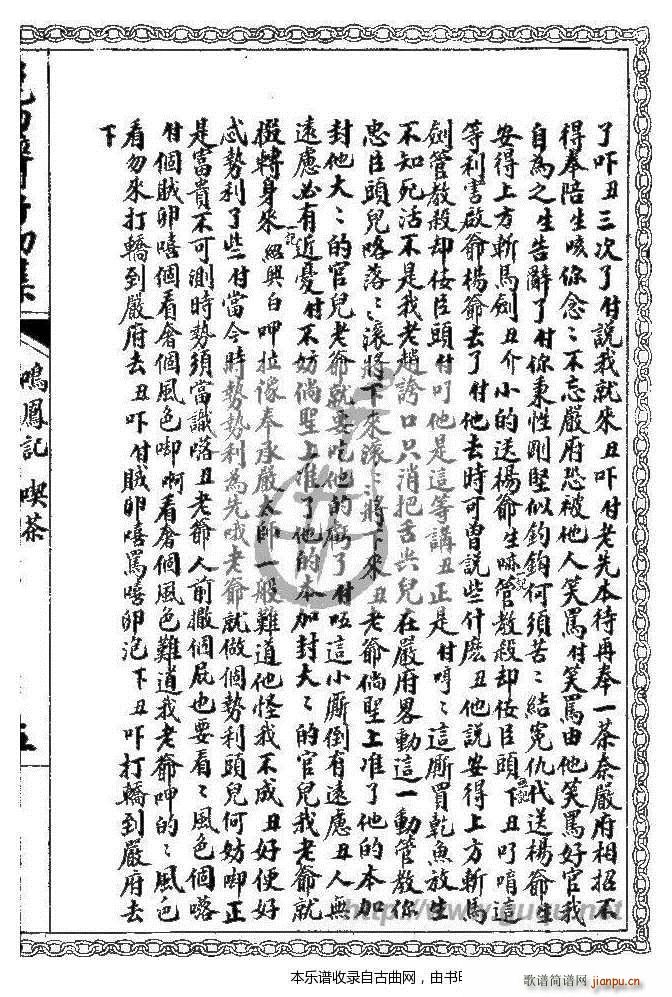 了吓丑三次了付說我就來丑吓付老先本待再奉一茶奈嚴府相招不
得奉陪生咳你念〻不忘嚴府恐被他人笑罵付笑罵由他笑罵好官我
自為之生告辭了付你秉性剛堅似鈞鈎何須苦〻結冤仇代送楊爺生
安得上方斬馬劍丑介小的送楊爺生嘛管教殺却佞臣頭下丑叮唷這
等利害啟爺楊爺去了付他去時可曾說些什麽丑他說安得上方斬馬
劍管教殺却佞臣頭付叮他是這等講丑正是付哼〻這厮買乾魚放生
不知死活不是我老趙誇口只消把舌尖兒在嚴府畧動這一動管教你
忠臣頭兒咯落〻滾將下來滾〻將下來丑老爺倘聖上准了他的本加
封他大〻的官兒老爺就要吃他的虧了付呸這小厮倒有遠慮丑人無
遠慮必有近憂付不妨倘聖上准了他的本加封大〻的官兒我老爺就
掇轉身來紹興白呷拉像奉承嚴太師一般難道他怪我不成丑好便好
忒勢利了些付當今時勢勢利為先哦老爺就做個勢利頭兒何妨唧正
是富貴不可測時勢須當識咯丑老爺人前撒個屁也要看〻風色個咯
付個賊卵嘻個看奢個風色唧啊看奢個風色難道我老爺呷的〻風色
看勿來打轎到嚴府去丑吓付賊卵嘻罵嘻卵泡下丑吓打轎到嚴府去
下
集
鳴鳳記 喫茶
五
http://www.guqu.net
本乐谱收录自古曲网，由书
歌谱简谱网
jianpu.cn